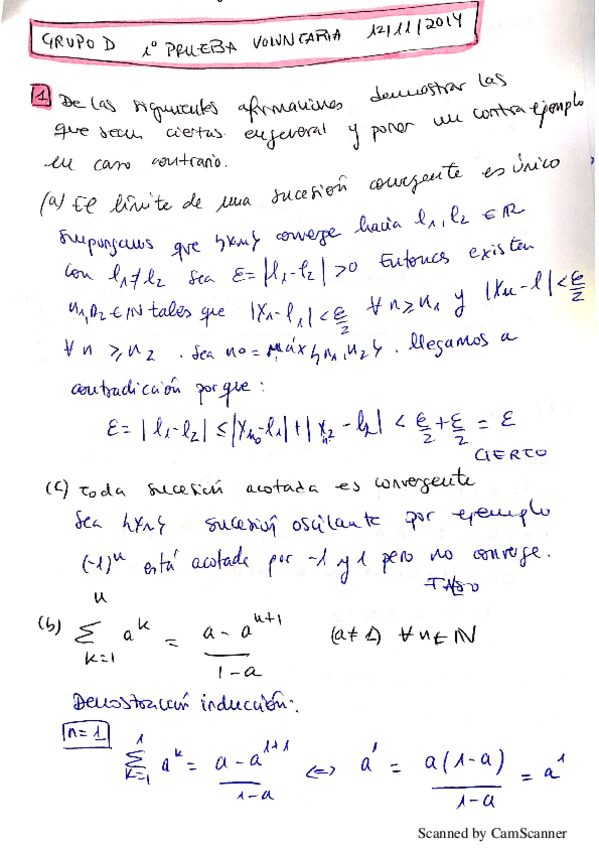 GRUPO D 1º PRUEBA VOLUNTARIA 12/11/2014
1 De las siguientes afirmaciones demostrar las
que sean ciertas en general y poner un contraejemplo
en caso contrario.
(a) El límite de una sucesión convergente es único
Supongamos que {xn} converge hacia l₁, l₂ ∈ ℝ
con l₁ ≠ l₂ Sea ε = |l₁-l₂| > 0 Entonces existen
n₁, n₂ ∈ ℕ tales que |xn-l₁| < ε/2 ∀ n ≥ n₁ y |xn-l| < ε/2
∀ n ≥ n₂. Sea n₀ = máx{n₁, n₂}. llegamos a
contradicción porque:
ε = |l₁-l₂| ≤ |xn₀-l₁| + |x -l₂| < ε/2 + ε/2 = ε
CIERTO
(c) Toda sucesión acotada es convergente
Sea {xn} sucesión oscilante por ejemplo
(-1)ⁿ está acotada por -1 y 1 pero no converge.
FALSO
(b) n ∑ k=1 aᵏ = a - aⁿ⁺¹ / 1-a (a≠1) ∀ n ∈ ℕ
Demostración inducción:
n=1
1 ∑ k=1 aᵏ = a - a¹⁺¹ / 1-a <=> a¹ = a(1-a) / 1-a = a¹
Scanned by CamScanner